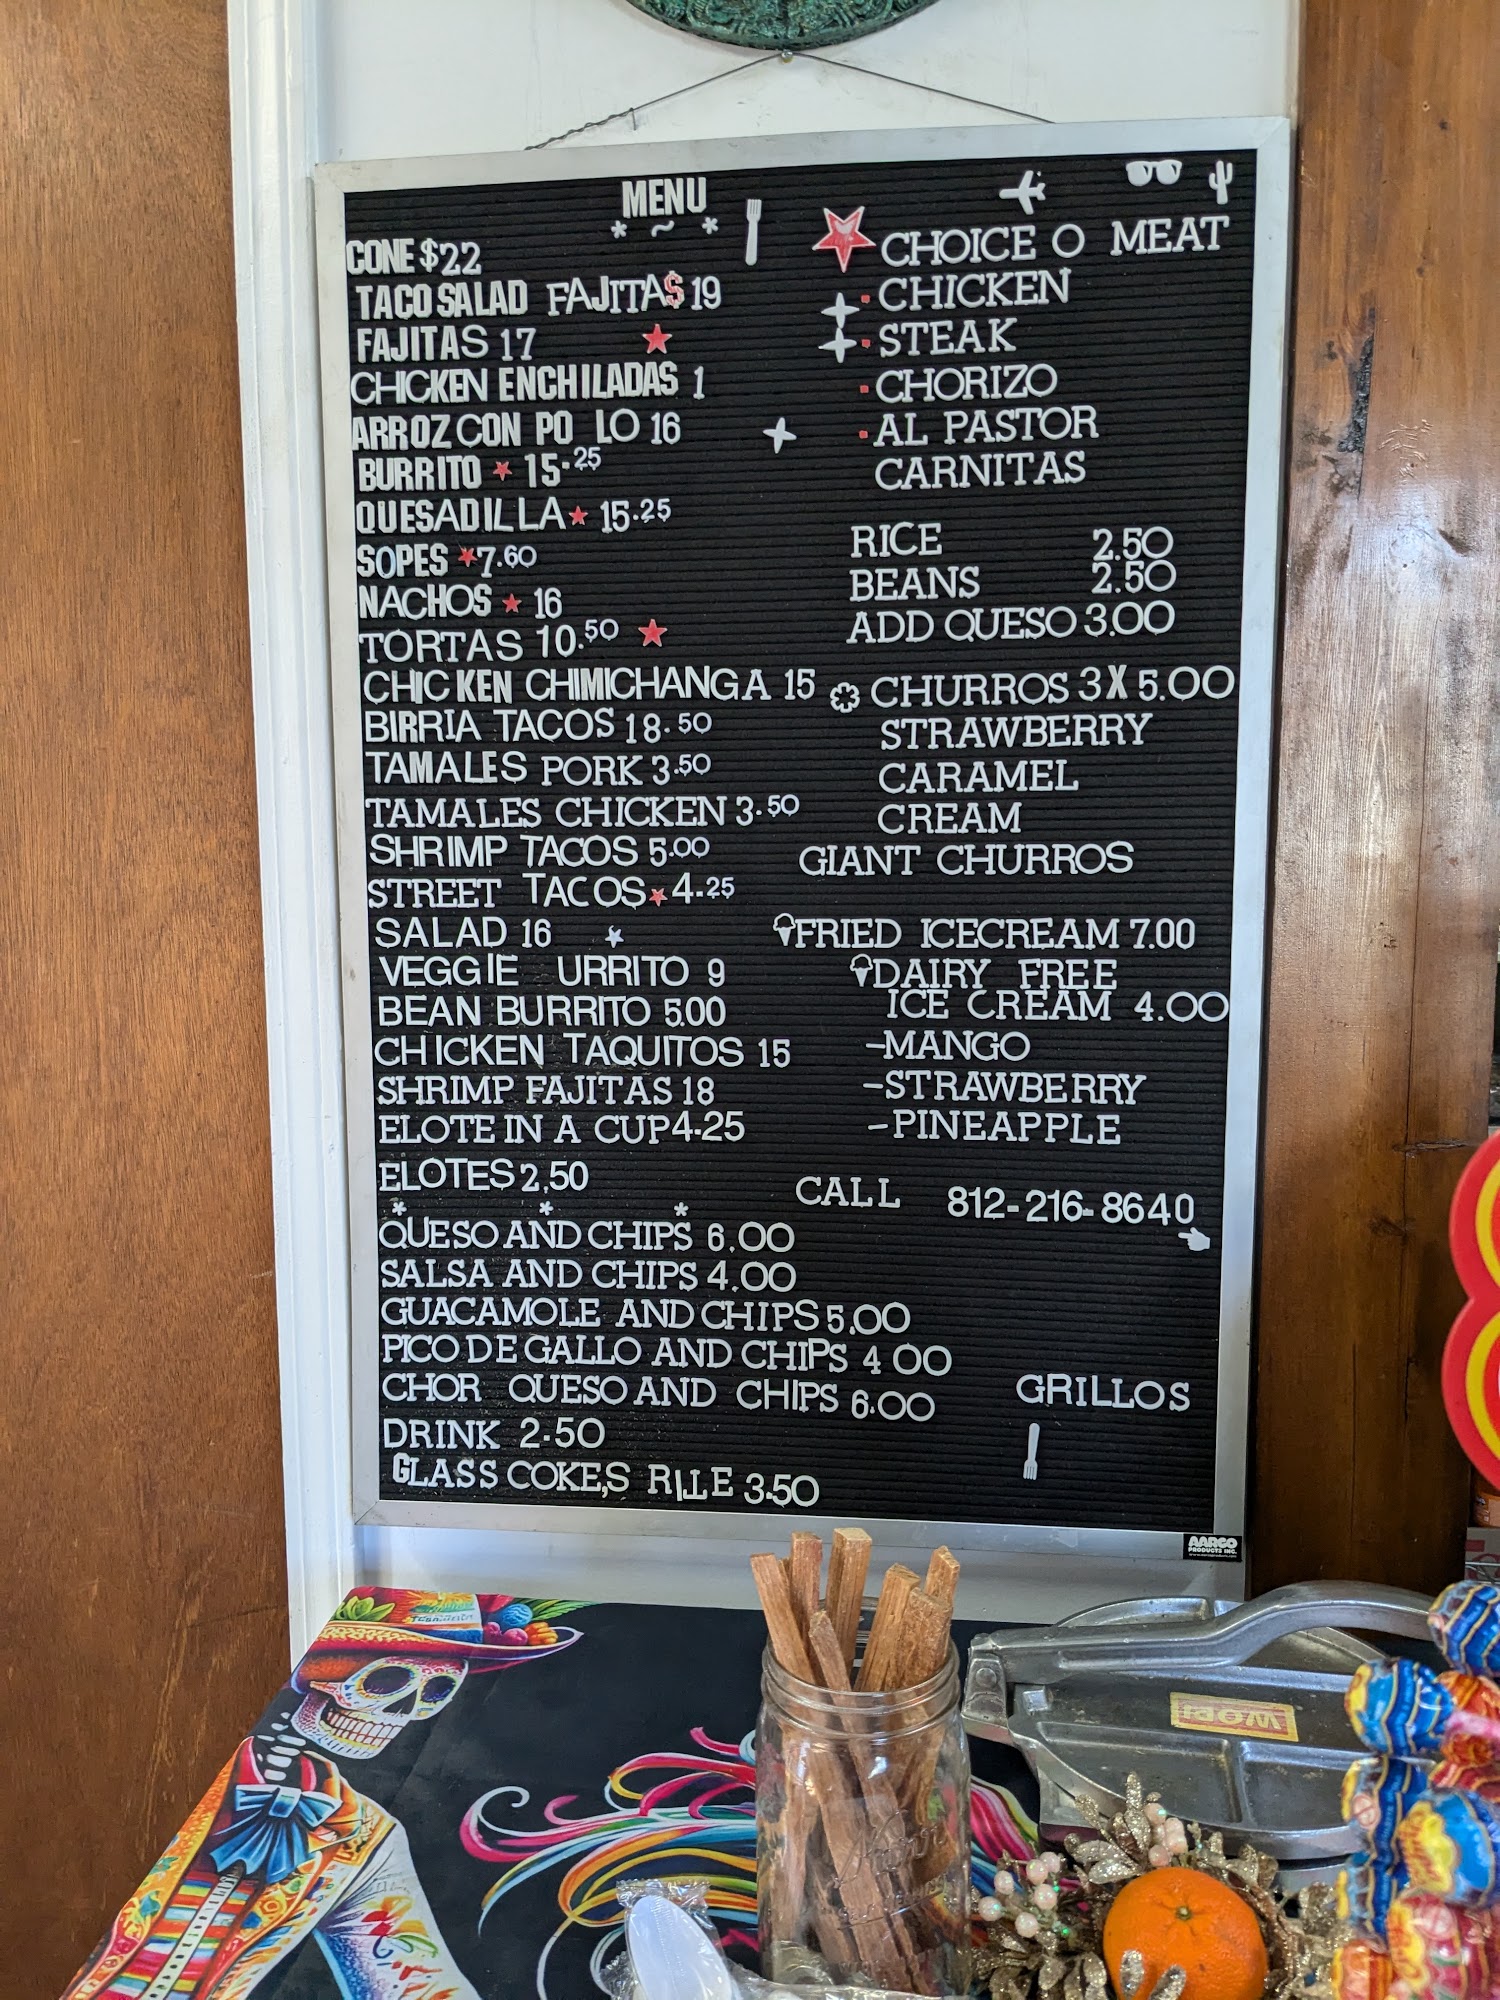 MENU
* ~ *
CONE $22
TACO SALAD FAJITA$ 19
FAJITAS 17
CHICKEN ENCHILADAS 1
ARROZ CON PO LO 16
BURRITO 15.25
QUESADILLA 15.25
SOPES 7.60
NACHOS 16
TORTAS 10.50
CHICKEN CHIMICHANGA 15
BIRRIA TACOS 18.50
TAMALES PORK 3.50
TAMALES CHICKEN 3.50
SHRIMP TACOS 5.00
STREET TACOS 4.25
SALAD 16
VEGGIE URRITO 9
BEAN BURRITO 5.00
CHICKEN TAQUITOS 15
SHRIMP FAJITAS 18
ELOTE IN A CUP 4.25
ELOTES 2,50
* * *
QUESO AND CHIPS 6.00
SALSA AND CHIPS 4.00
GUACAMOLE AND CHIPS 5.00
PICO DE GALLO AND CHIPS 4 00
CHOR QUESO AND CHIPS 6.00
DRINK 2.50
GLASS COKE,S 3.50
CHOICE O MEAT
CHICKEN
STEAK
CHORIZO
AL PASTOR
CARNITAS
RICE 2.50
BEANS 2.50
ADD QUESO 3.00
CHURROS 3 X 5.00
STRAWBERRY
CARAMEL
CREAM
GIANT CHURROS
FRIED ICECREAM 7.00
DAIRY FREE
ICE CREAM 4.00
-MANGO
-STRAWBERRY
-PINEAPPLE
CALL 812-216-8640
GRILLOS
AARCO
PRODUCTS INC.